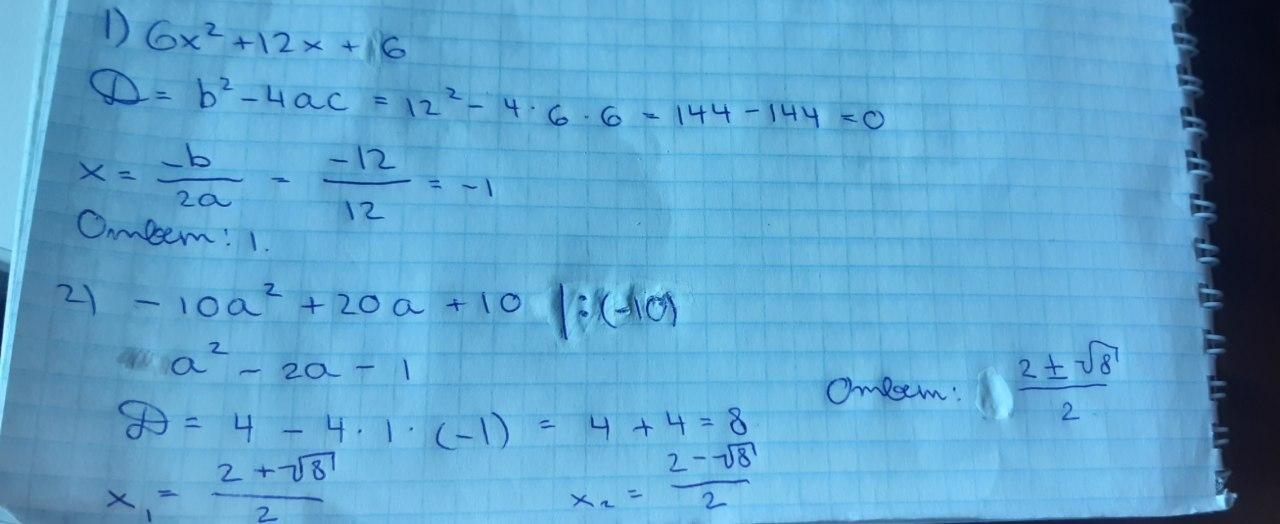 1) 6x² + 12x + 6
D = b² - 4ac = 12² - 4 · 6 · 6 = 144 - 144 = 0
x = -b/2a = -12/12 = -1
Ответ: 1.
2) - 10a² + 20a + 10 |:(-10)
a² - 2a - 1
D = 4 - 4 · 1 · (-1) = 4 + 4 = 8
x₁ = (2 + √8)/2 x₂ = (2 - √8)/2
Ответ: (2 ± √8)/2